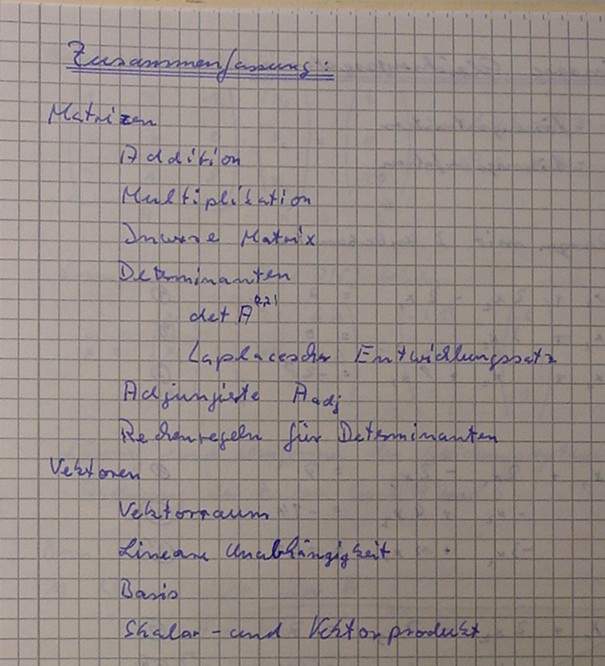 Zusammenfassung:
Matrizen
Addition
Multiplikation
Inverse Matrix
Determinanten
det A^(2,2)
Laplacescher Entwicklungssatz
Adjungierte A_adj
Rechenregeln für Determinanten
Vektoren
Vektorraum
Lineare Unabhängigkeit
Basis
Skalar- und Vektorprodukt